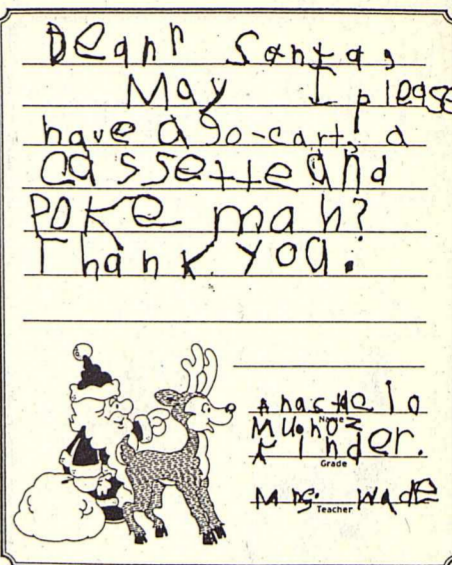 Deanr Santa,
May I please
have a go-cart, a
cassette and
POKE man?
Thank you.
Anastacio
Name
Munoz
Kinder.
Grade
Mrs. Wade
Teacher